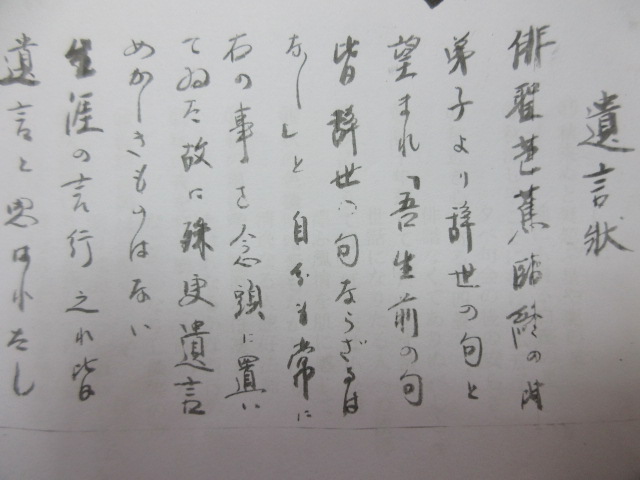 遺言状
俳聖芭蕉臨終の時
弟子より辞世の句と
望まれ「吾生前の句
皆辞世の句ならざるは
なし」と自分も常に
右の事を念頭に置い
てゐた故に殊更遺言
めかしきものはない
生涯の言行之れ皆
遺言と思はれたし